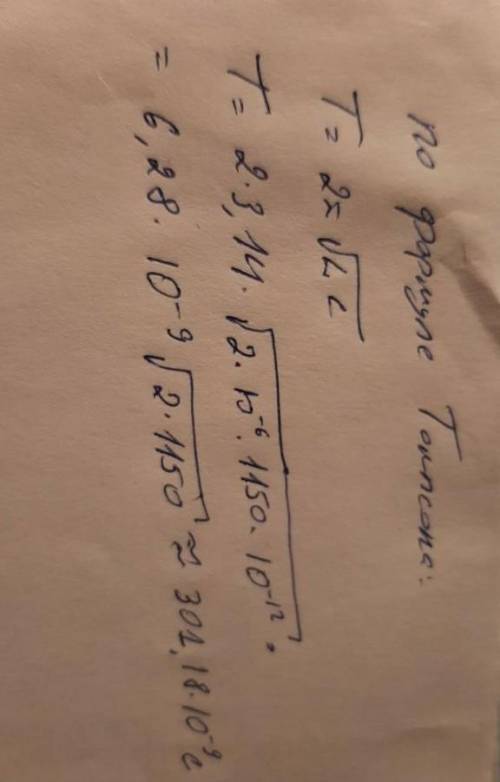 По формуле Томпсона:
T = 2π √LC
T = 2·3,14· √2·10⁻⁶·1150·10⁻¹² =
= 6,28· 10⁻⁹ √2·1150 ≈ 301,18·10⁻⁹ с